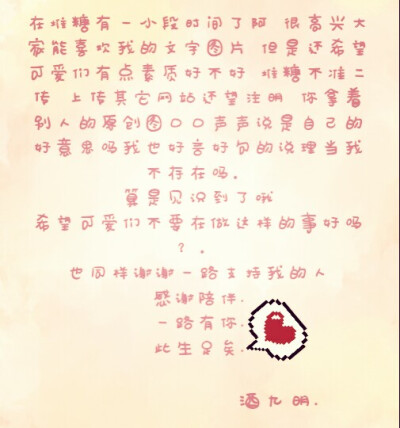 在堆糖有一小段时间了阿 很高兴大
家能喜欢我的文字图片 但是还希望
可爱们有点素质好不好 堆糖不准二
传 上传其它网站还望注明 你拿着
别人的原创图口口声声说是自己的
好意思吗我也好言好句的说理当我
不存在吗。
算是见识到了哦
希望可爱们不要在做这样的事好吗
？。
也同样谢谢一路支持我的人
感谢陪伴.
一路有你.
此生足矣.
酒九明.